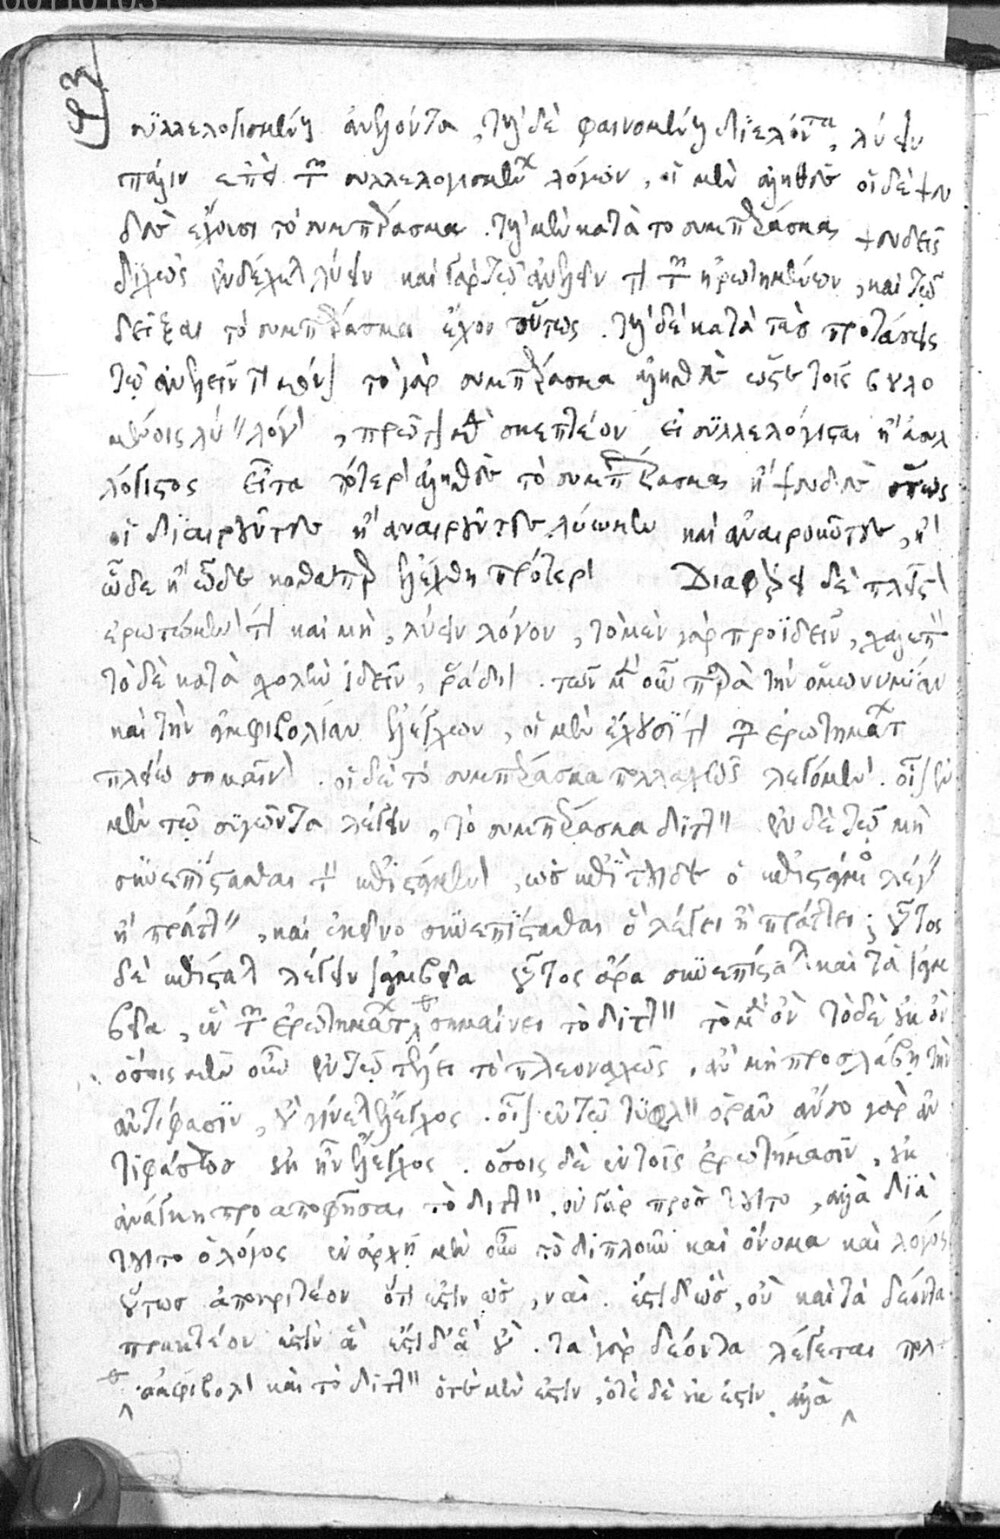 συλλελογισμένον ἀνελόντα, τὸν δὲ φαινόμενον διελόντα, λύειν
πάλιν ἐπεὶ τῶν συλλελογισμένων λόγων, οἱ μὲν ἀληθὲς οἱ δὲ ψευ
δὲς ἔχουσι τὸ συμπέρασμα. τοὺς μὲν κατὰ τὸ συμπέρασμα ψευδεῖς
διχῶς ἐνδέχεται λύειν καὶ γὰρ τῷ ἀνελεῖν τι τῶν ἠρωτημένων, καὶ τῷ
δεῖξαι τὸ συμπέρασμα ἔχον οὕτως. τοὺς δὲ κατὰ τὰς προτάσεις
τῷ ἀνελεῖν τι μόνον τὸ γὰρ συμπέρασμα ἀληθὲς ὥστε τοῖς βουλο
μένοις λύειν λόγον, πρῶτον μὲν σκεπτέον εἰ συλλελόγισται ἢ ἀσυλ
λόγιστος εἶτα πότερον ἀληθὲς τὸ συμπέρασμα ἢ ψευδὲς ὅπως
ἢ διαιροῦντες ἢ ἀναιροῦντες λύωμεν καὶ ἀναιροῦντες, ἢ
ὧδε ἢ ὧδε καθάπερ ἐλέχθη πρότερον Διαφέρει δὲ πλεῖστον
ἐρωτώμενόν τε καὶ μὴ, λύειν λόγον, τὸ μὲν γὰρ προϊδεῖν, χαλεπὸν
τὸ δὲ κατὰ σχολὴν ἰδεῖν, ῥάδιον. τῶν μὲν οὖν παρὰ τὴν ὁμωνυμίαν
καὶ τὴν ἀμφιβολίαν ἐλέγχων, οἱ μὲν ἔχουσί τι τῶν ἐρωτημάτων
πλείω σημαῖνον. οἱ δὲ τὸ συμπέρασμα πολλαχῶς λεγόμενον. οἷον ἐν
μὲν τῷ σιγῶντα λέγειν, τὸ συμπέρασμα διττόν ἐν δὲ τῷ μὴ
συνεπίστασθαι τὸν ἐπιστάμενον
ἢ πράττει, καὶ ἐκεῖνο συνεπίστασθαι ὃ λέγει ἢ πράττει; οὗτος
δὲ ἐπίσταται λέγειν ἰαμβεῖα οὗτος ἄρα συνεπίσταται καὶ τὰ ἰαμ
βεῖα, ἓν τῶν ἐρωτημάτων σημαίνει τὸ διττόν τὸ μὲν ὂν τὸ δὲ οὐκ ὂν
ὅσοις μὲν οὖν ἐν τῷ τέλει τὸ πλεοναχῶς, ἂν μὴ προσλάβῃ τὴν
ἀντίφασιν, οὐ γίνεται ἔλεγχος. οἷον ἐν τῷ τὸν τυφλὸν ὁρᾶν ἄνευ γὰρ ἀν
τιφάσεως οὐκ ἦν ἔλεγχος. ὅσοις δὲ ἐν τοῖς ἐρωτήμασιν, οὐκ
ἀνάγκη προαποφῆσαι τὸ διττόν, οὐ γὰρ πρὸς τοῦτο, ἀλλὰ διὰ
τοῦτο ὁ λόγος ἐν ἀρχῇ μὲν οὖν τὸ διπλοῦν καὶ ὄνομα καὶ λόγον
οὕτως ἀποκριτέον ὅτι ἔστιν ὡς, ναί. ἔστι δ' ὡς, οὔ καὶ τὰ δέοντα
πρακτέον ἔστιν ἃ ἔστι δ' ἃ οὔ. τὰ γὰρ δέοντα λέγεται πολ
ἀμφίβολον καὶ τὸ διττόν ὁτὲ μὲν ἔστιν, ὁτὲ δὲ οὐκ ἔστιν. ἀλλὰ